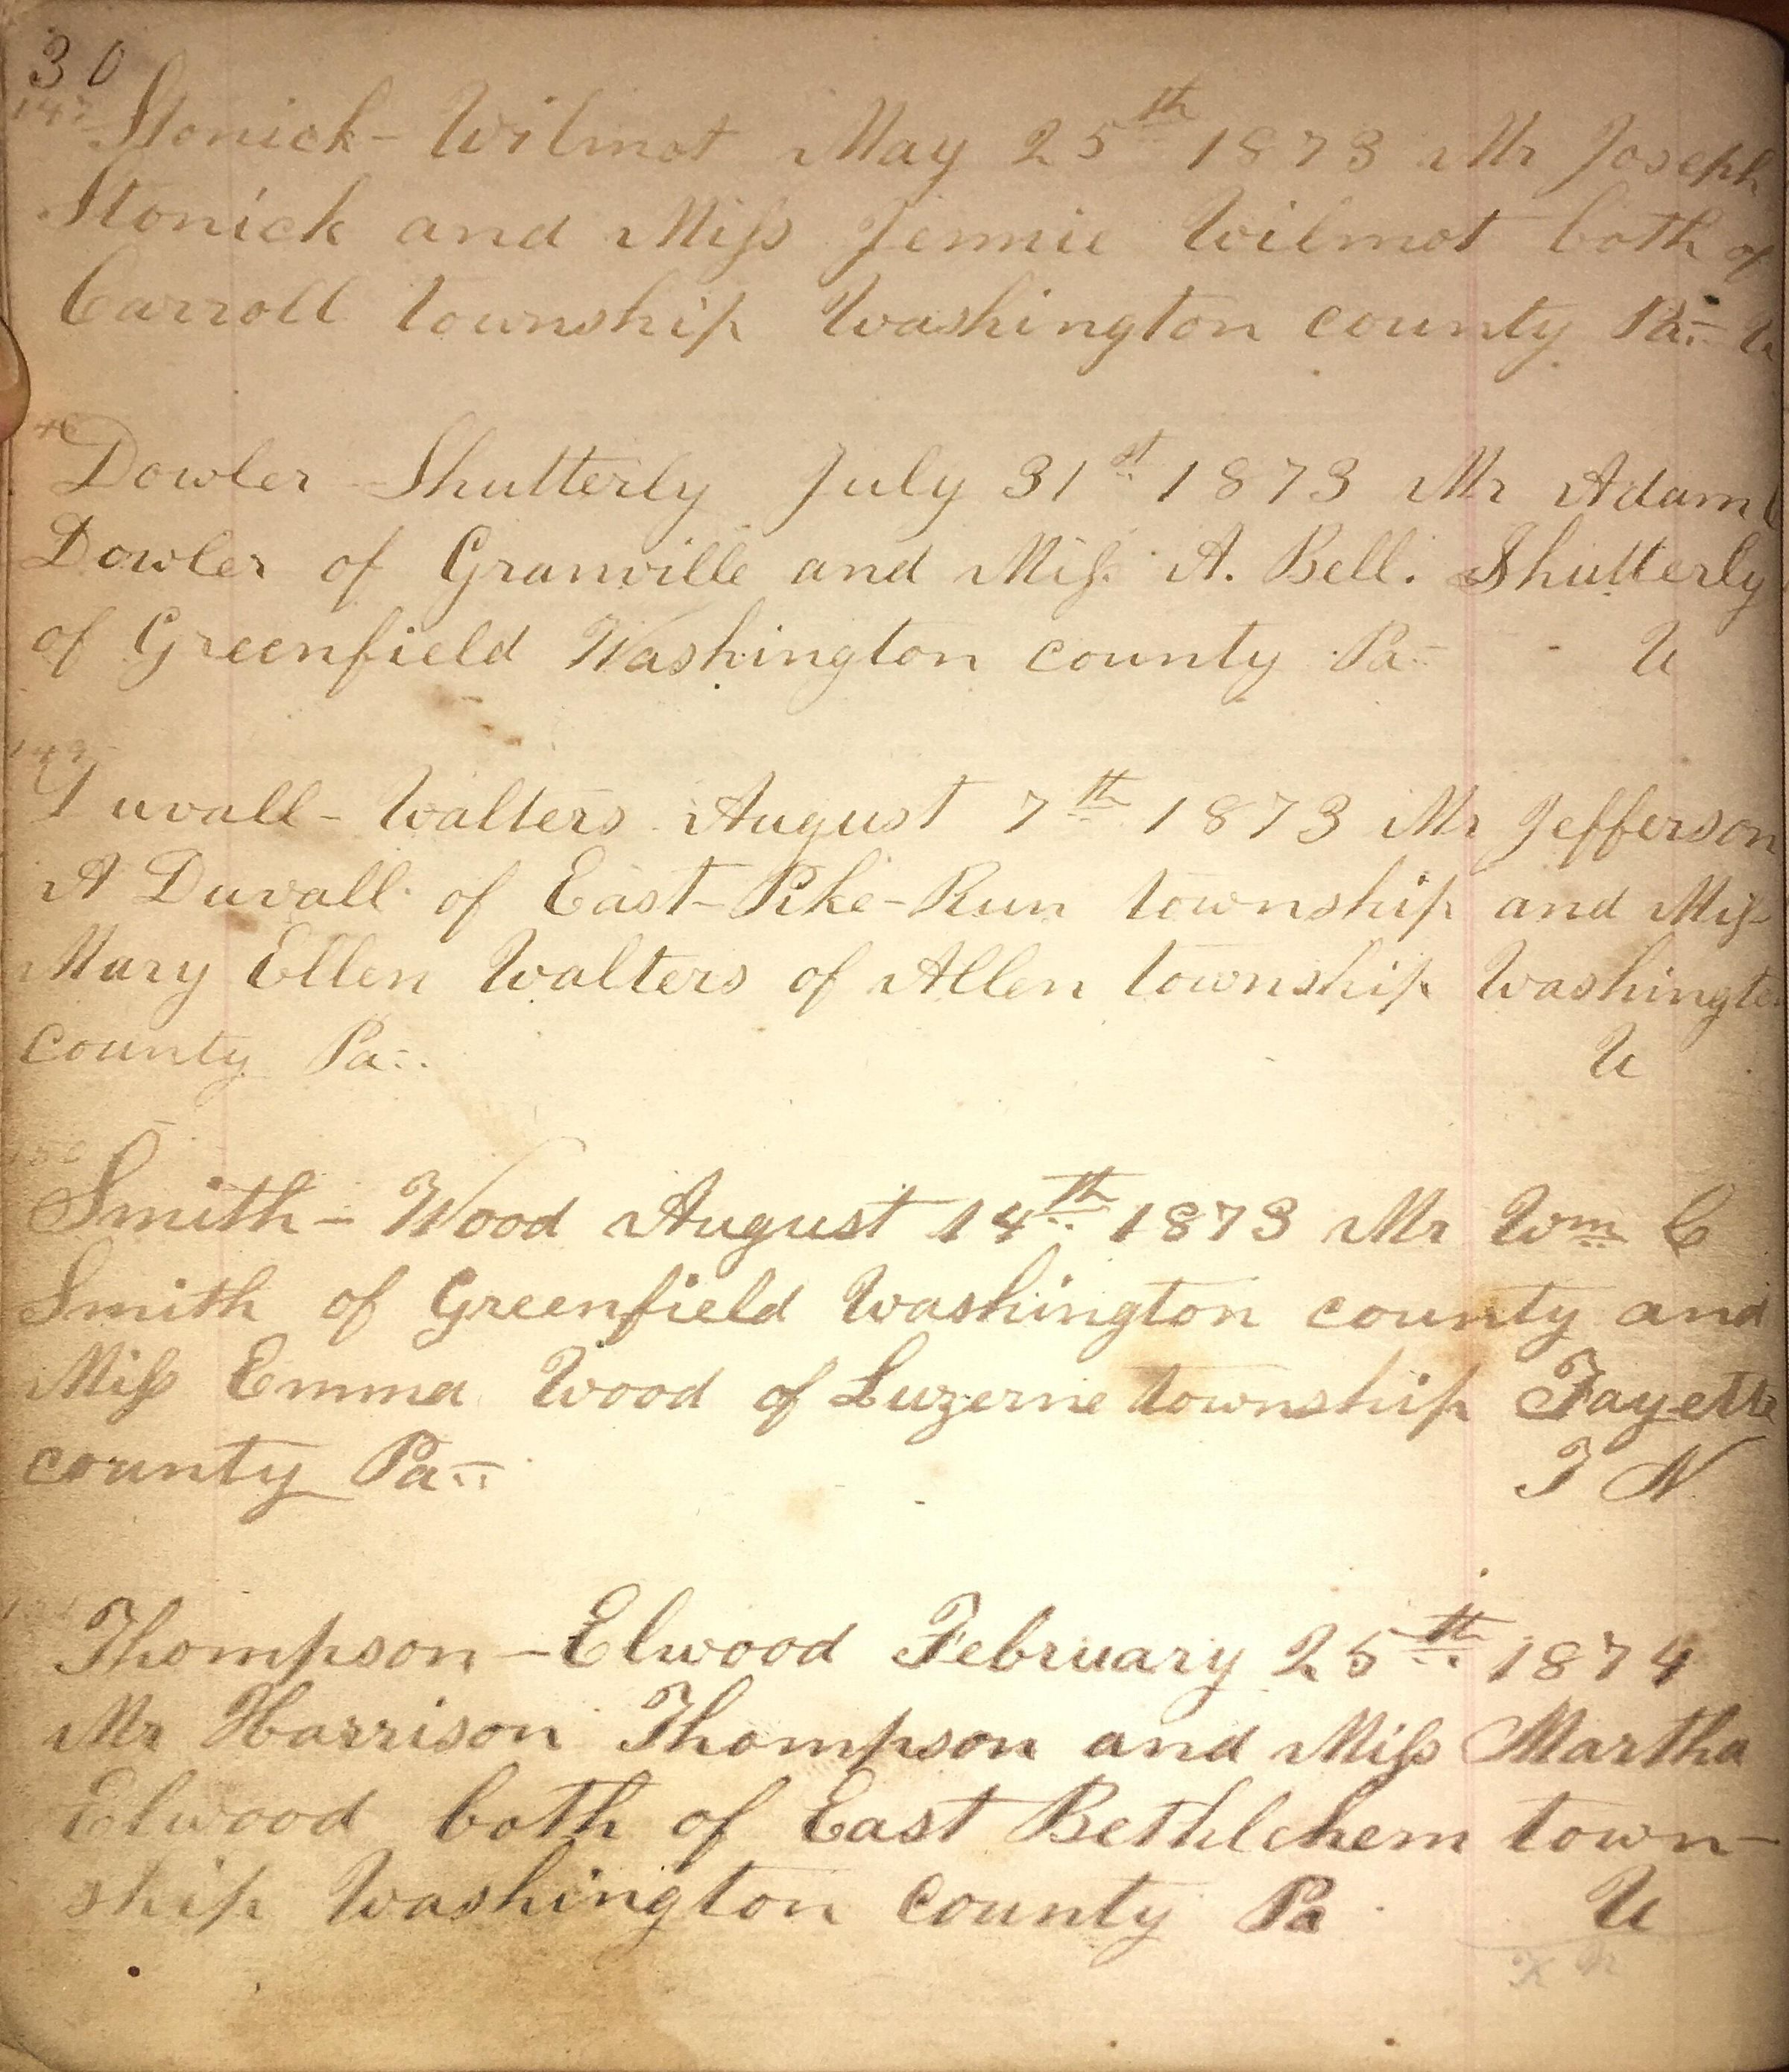 30
147 Stonick - Wilmot May 25th 1873 Mr Joseph
Stonick and Miss Jennie Wilmot both of
Carroll township Washington county Pa - U
Dowler Shutterly July 31st 1873 Mr Adam
Dowler of Granville and Miss A. Bell. Shutterly
of Greenfield Washington county Pa - U
149
Duvall - Walters August 7th 1873 Mr Jefferson
A Duvall of East-Pike-Run township and Miss
Mary Ellen Walters of Allen township Washington
county Pa U
150
Smith - Wood August 14th 1873 Mr Wm C
Smith of Greenfield Washington county and
Miss Emma Wood of Luzerne township Fayette
county Pa F N
Thompson - Elwood February 25th 1874
Mr Harrison Thompson and Miss Martha
Elwood both of East Bethlehem town-
ship Washington county Pa U